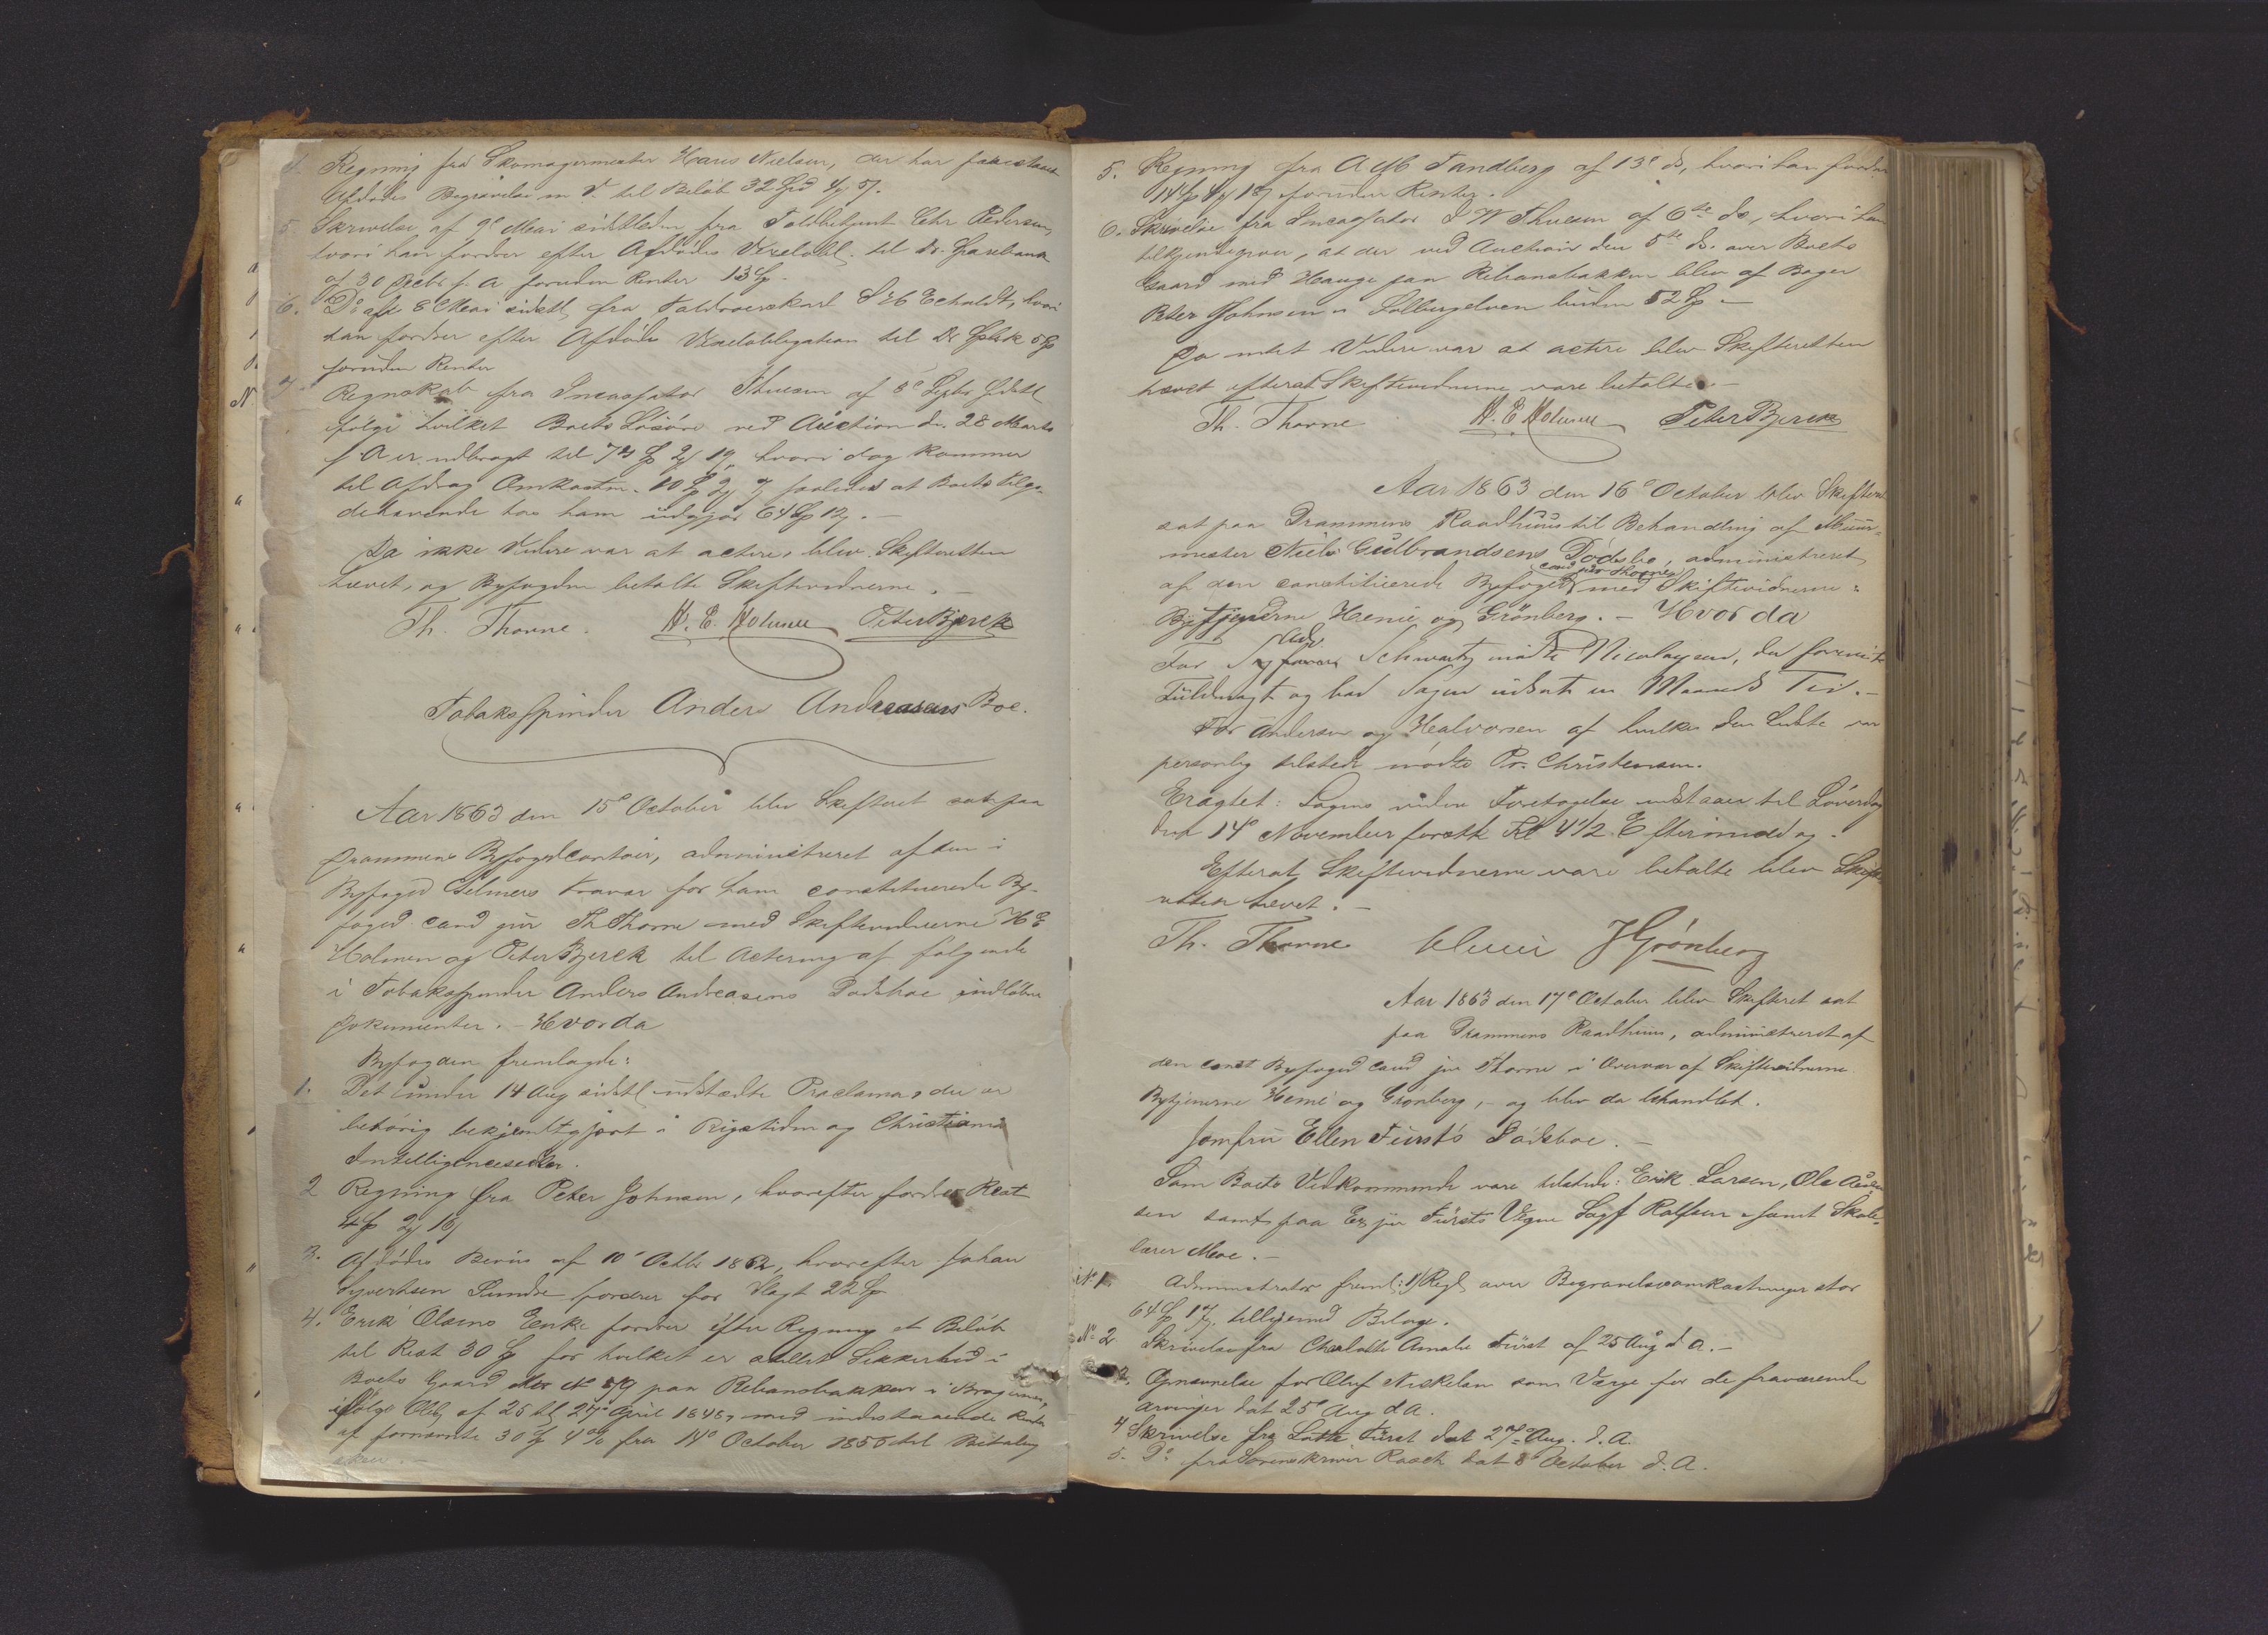 4. Regning fra Skomagermester Hans Nielsen, der har forestaaet
Afdødes Begravelse m. V. til Beløb 32 Spd 4 57.
5. Skrivelse af 9de Mai sidstleden fra Toldbetjent Chr Pedersen
hvori han fordrer efter Afdødes Vexelobl. til Dr. Sparebank
af 30 Decbr f. A foruden Renter 13 Sp.
6. Do af 8 Mai sidstl fra Toldroerskarl Echoldt, hvori
han fordrer efter Afdødes Vexelobligation til Dr Spbk 5 Sp
foruden Renter
7 Regnskab fra Incassator Thuesen af 5de Septbr sidstl
ifølge hvilket Boets Løsøre ved Auction d. 28 Marts
f. A er udbragt til 74 Sp 2 19, hvori dog kommer
til Afdrag Omkostn. 10 Sp 2 7 saaledes at Boets Tilgo-
dehavende hos ham udgjør 64 Sp 12.
Da ikke Videre var at actere, blev Skifteretten
hævet, og Byfogden betalte Skiftevidnerne. —
Th. Thorne. H. E. Holmen Peter Bjerck
Tobakspinder Anders Andreasens Boe.
Aar 1863 den 15de October blev Skifteret sat paa
Drammens Byfogedcontoir, administreret af den i
Byfoged Gelmers Fravær for ham constituerede By-
foged cand jur Th Thorne med Skiftevidnerne H E
Holmen og Peter Bjerck til Actering af følgende
i Tobakspinder Anders Andreasens Dødsboe indløbne
Dokumenter. — Hvorda
Byfogden fremlagde:
1. Det under 14 Aug sidstl udstædte Proclama, der er
behørig bekjendtgjort i Rigstidn og Christiania
Intelligencesedler.
2 Regning fra Peter Johnsen, hvorefter fordres Rest
4 Sp 2 16
3. Afdødes Beviis af 10de Octbr 1862, hvorefter Johan
Syvertsen Sundre fordrer for Vægt 22 Sp
4. Erik Olsens Enke fordrer efter Regning et Beløb
til Rest 30 Sp for hvilket er stillet Sikkerhed i
Boets Gaard Mtr No 519 paa Rebansbakken i Bragernes,
ifølge Obl af 26 tl 27de April 1848, med indestaaende Renter
af fornævnte 30 Sp 4 % fra 14de October 1855 til Betaling
skeer. —
5. Regning fra A Tandberg af 13de ds, hvori han fordrer
14 Sp 4 18 foruden Renter.
6. Skrivelse fra Incassator J W Thuesen af 6te ds, hvori han
tilkjendegiver, at der ved Auction den 5te ds. over Boets
Gaard med Hauge paa Rebansbakken blev af Bager
Peter Johnsen i Solbergelven buden 52 Sp. —
Da intet Videre var at actere blev Skifteretten
hævet efterat Skiftevidnerne vare betalte. —
Th. Thorne H. E. Holmen Peter Bjerck
Aar 1863 den 16de October blev Skifteret
sat paa Drammens Raadhuus til Behandling af Muur-
mester Niels Gulbrandsens Dødsbo, administreret
cand jur Thorne
af den constituerede Byfoged med Skiftevidnerne:
Bytjenerne Henie og Grönberg. — Hvorda
For Schwartz mødte Nicolaysen, der foreviste
Fuldmagt og bad Sagen udsat en Maaneds Tid. —
For Andersen og Halvorsen af hvilke den Sidste var
personlig tilstede mødte Pr. Christensen.
Eragtet: Sagens videre Foretagelse udstaaer til Løverdag
den 14de November førstk Kl 4 1/2 Eftermiddag.
Efterat Skiftevidnerne vare betalte blev Skifte-
retten hævet. —
Th. Thorne Henie J Grönberg
Aar 1863 den 17de October blev Skifteret sat
paa Drammens Raadhuus, administreret af
den const Byfoged cand jur Thorne i Overvær af Skiftevidnerne
Bytjenerne Henie og Grönberg, — og blev da behandlet.
Jomfru Ellen Fürst's Dødsboe. —
Som Boets Vedkommende vare tilstede: Erik Larsen, Ole
sen samt paa Fürsts Vegne Sagf Ralfsen samt Skole-
lærer Moe. —
No 1. Administrator freml: 1) Regl over Begravelsesomkostninger stor
64 Sp 17, tilligemed Bilage.
No 2. Skrivelse fra Charlotte Amalie Fürst af 25 Aug d A. —
3. Opnævnelse for Oluf Niskelan som Værge for de fraværende
Arvinger dat 25de Aug d A.
4 Skrivelse fra Lotte Fürst dat 27de Aug. d. A.
5. Do fra Sorenskriver Rasch dat 8de October d. A.